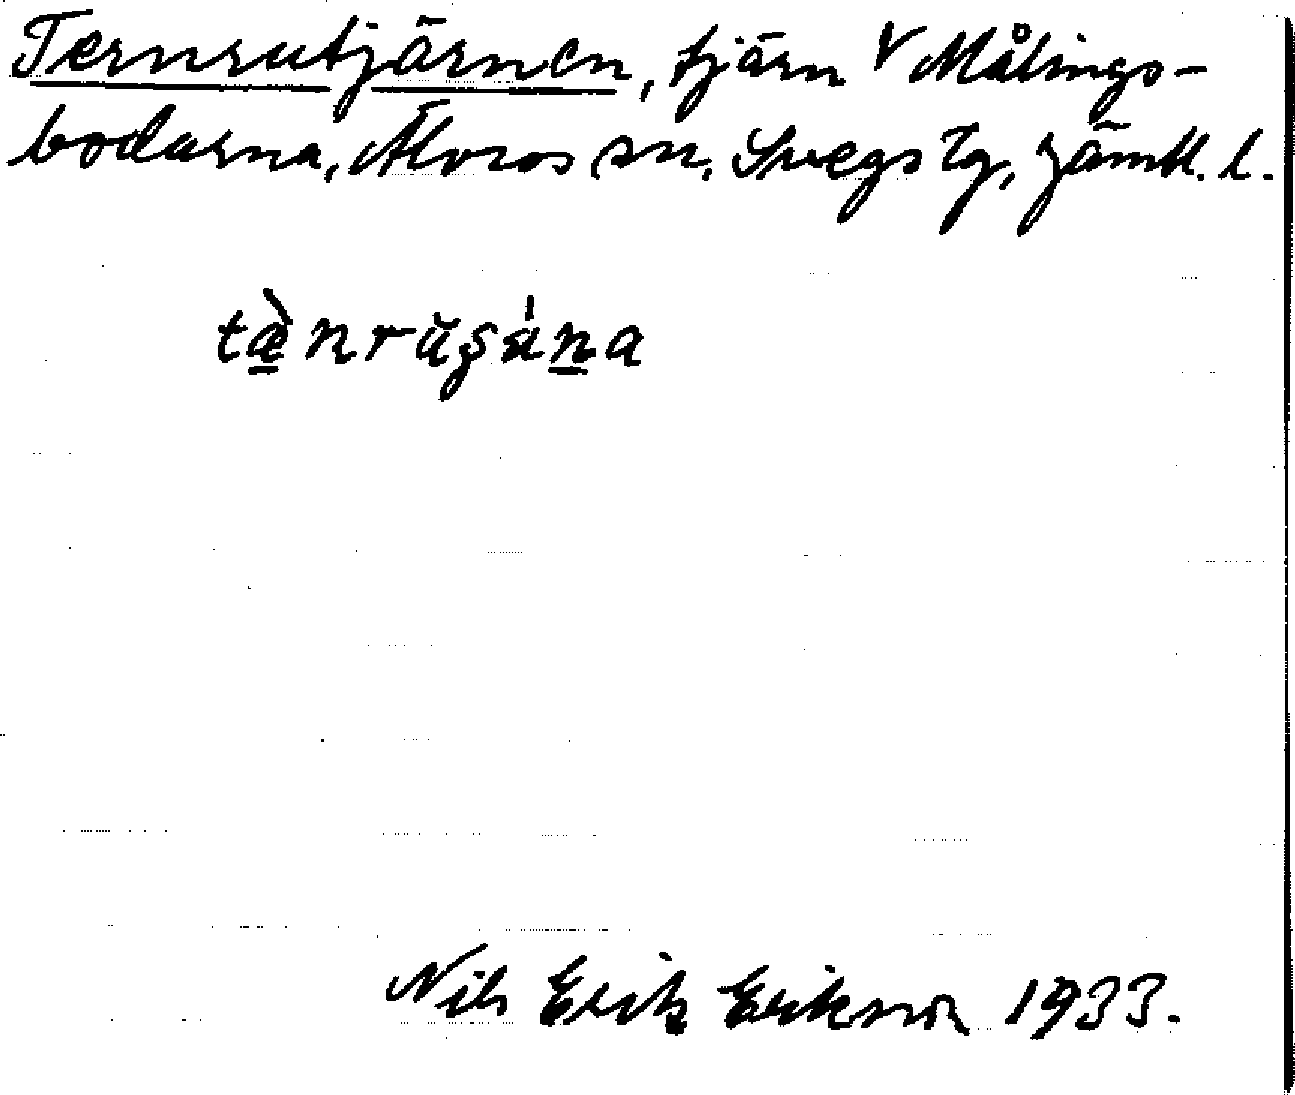 Ternrutjärnen, tjärn V Målings-
bodarna, Älvros sn, Svegs tg, Jämtl. l.
tæ̀nrŭʂána
Nils Erik Erikson 1933.